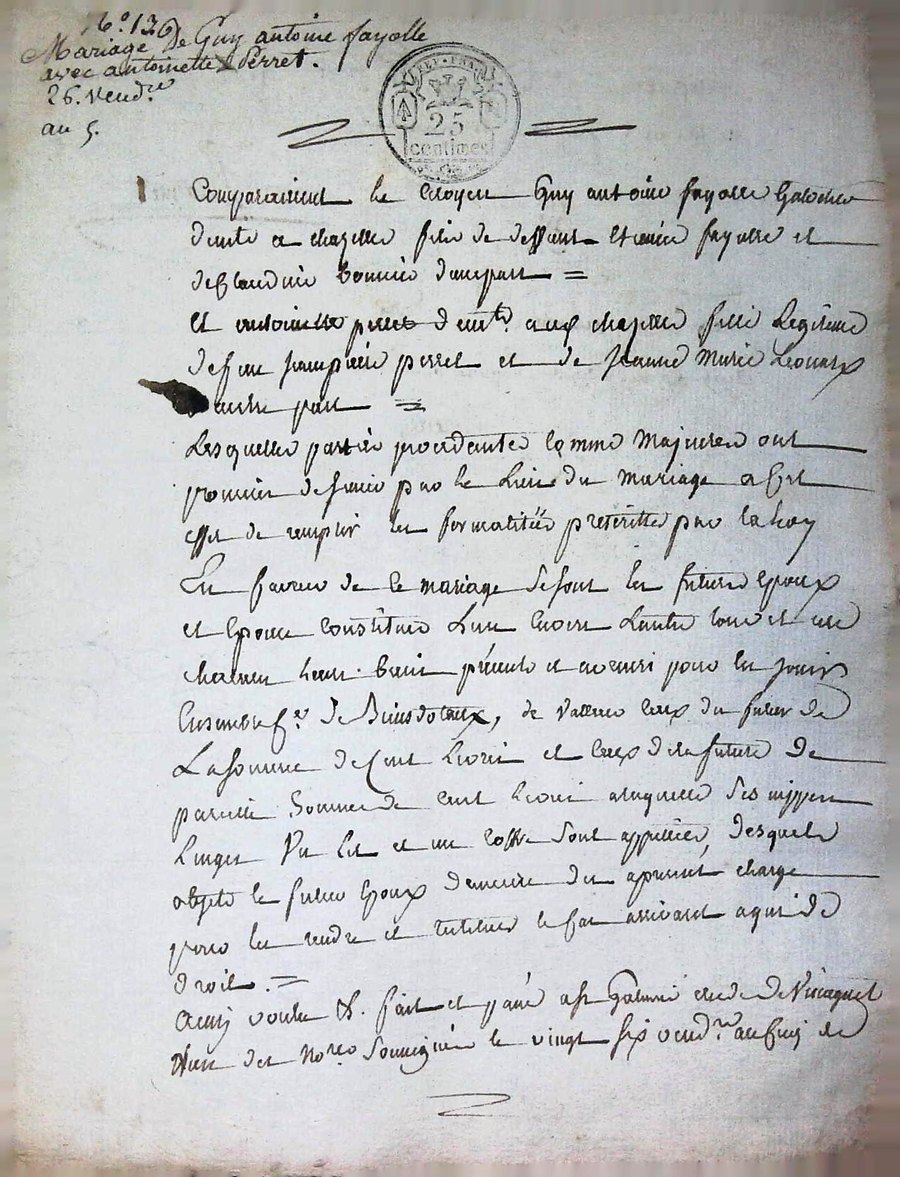 N.° 136
Mariage De Guy antoine fayolle
avec antoinette Perret.
26. Vend.re
au 5.
REP. FRA.
25
centimes
Comparaissent le Citoyen Guy antoine fayolle
dem.t a chazelle fils de deffunt Etienne fayolle et
de Claudine d'unepart =
Et antoinette perret dem.te aud chazelle fille Legitime
de feu Jeanpierre perret et de Jeanne Marie
d'autre part =
Lesquelles parties procedante comme Majeures ont
promis de s'unir par le Lien du mariage a Cet
effet de remplir les formalitées prescrittes par la Loy
En faveur de ce mariage se sont les futurs Epoux
et Epouse constitués L'un Envers L'autre tous et un
chacun Leurs biens présents et avenir pour en jouir
Ensemble de Biens dotaux, de valleur ceux du futur de
La somme de Cent Livres et ceux de la future de
pareille Somme de cent Livres a laquelle Ses nippes
Linges Un Lit et un Coffre Sont appréciés, desquels
objets le futur Epoux demeure des apresent chargé
pour les rendre et restituer le Cas arrivant a qui de
droit. =
Ainsy voulu &. fait et passé a St Galmier etude de
L'un des No.res Soussignés le vingt Six vend.re an Cinq de